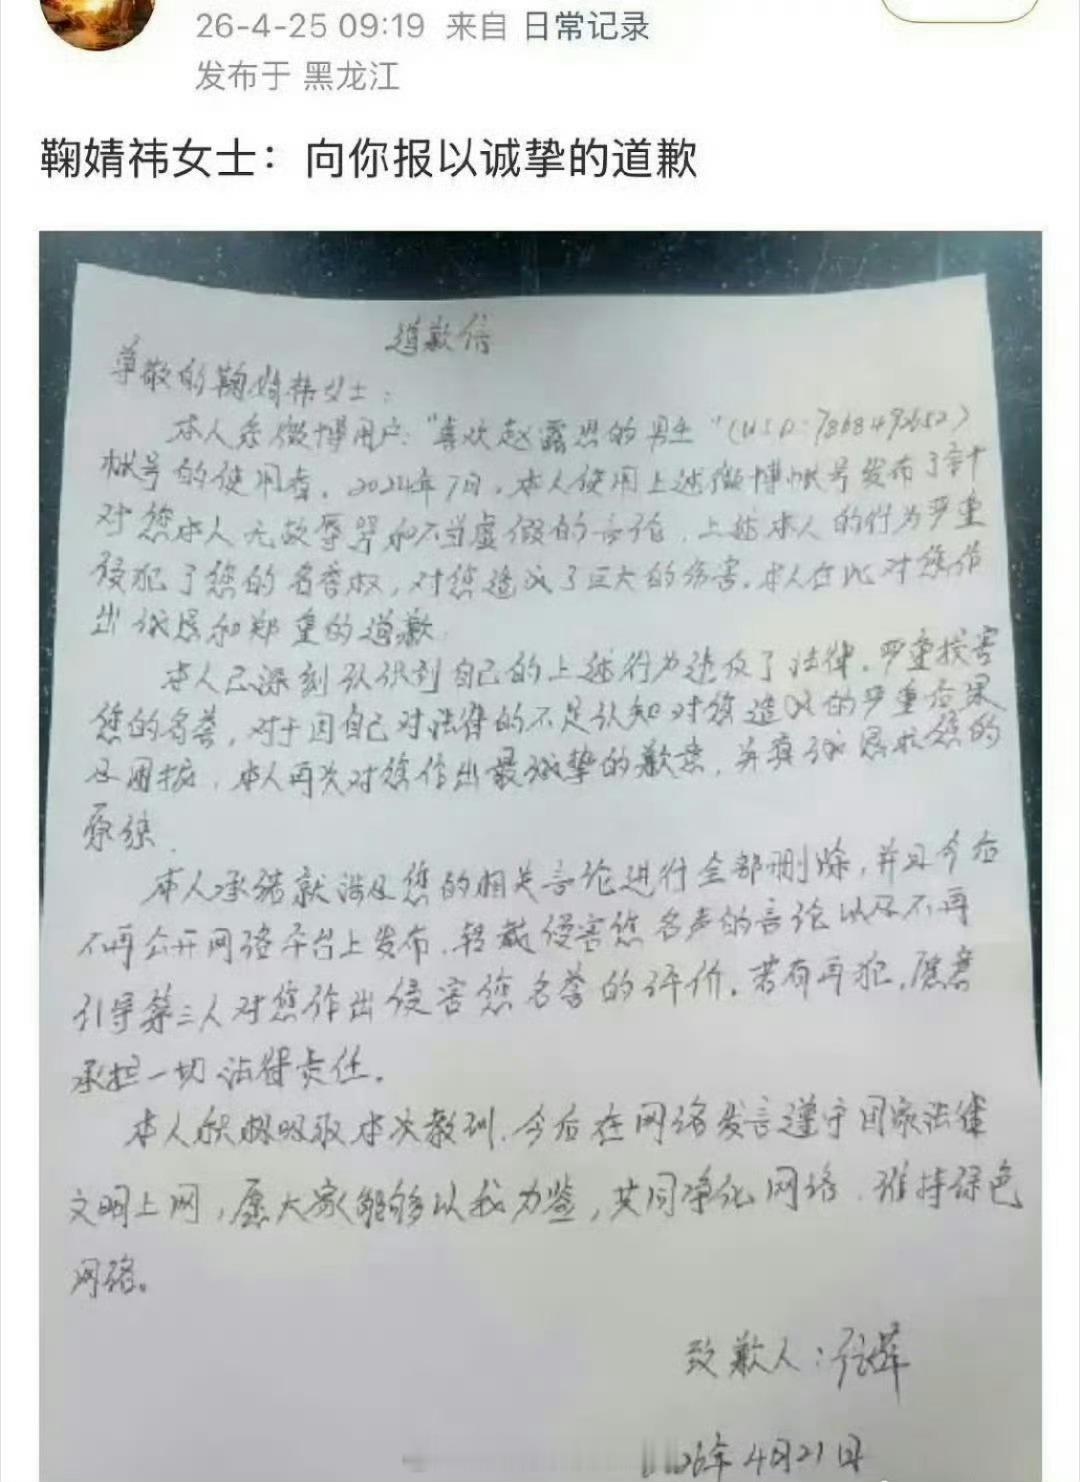 26-4-25 09:19 来自 日常记录
发布于 黑龙江
鞠婧祎女士：向你报以诚挚的道歉
道歉信
尊敬的鞠婧祎女士：
本人系微博用户："喜欢赵露思的男生"(UID:7868492652)
帐号的使用者。2024年7月，本人使用上述微博帐号发布了针
对您本人无故辱骂和不当虚假的言论，上述本人的行为严重
侵犯了您的名誉权，对您造成了巨大的伤害。本人在此对您作
出诚恳和郑重的道歉
本人已深刻认识到自己的上述行为违反了法律，严重损害
您的名誉，对于因自己对法律的不足认知对您造成的严重后果
及困扰，本人再次对您作出最诚挚的歉意，并真诚恳求您的
原谅.
本人承诺就涉及您的相关言论进行全部删除，并且今后
不再公开网络平台上发布、转载侵害您名声的言论以及不再
引导第三人对您作出侵害您名誉的评价。若有再犯，愿意
承担一切法律责任。
本人积极吸取本次教训，今后在网络发言遵守国家法律
文明上网，愿大家能够以我为鉴，共同净化网络，维持绿色
网络。
致歉人：
26年4月21日